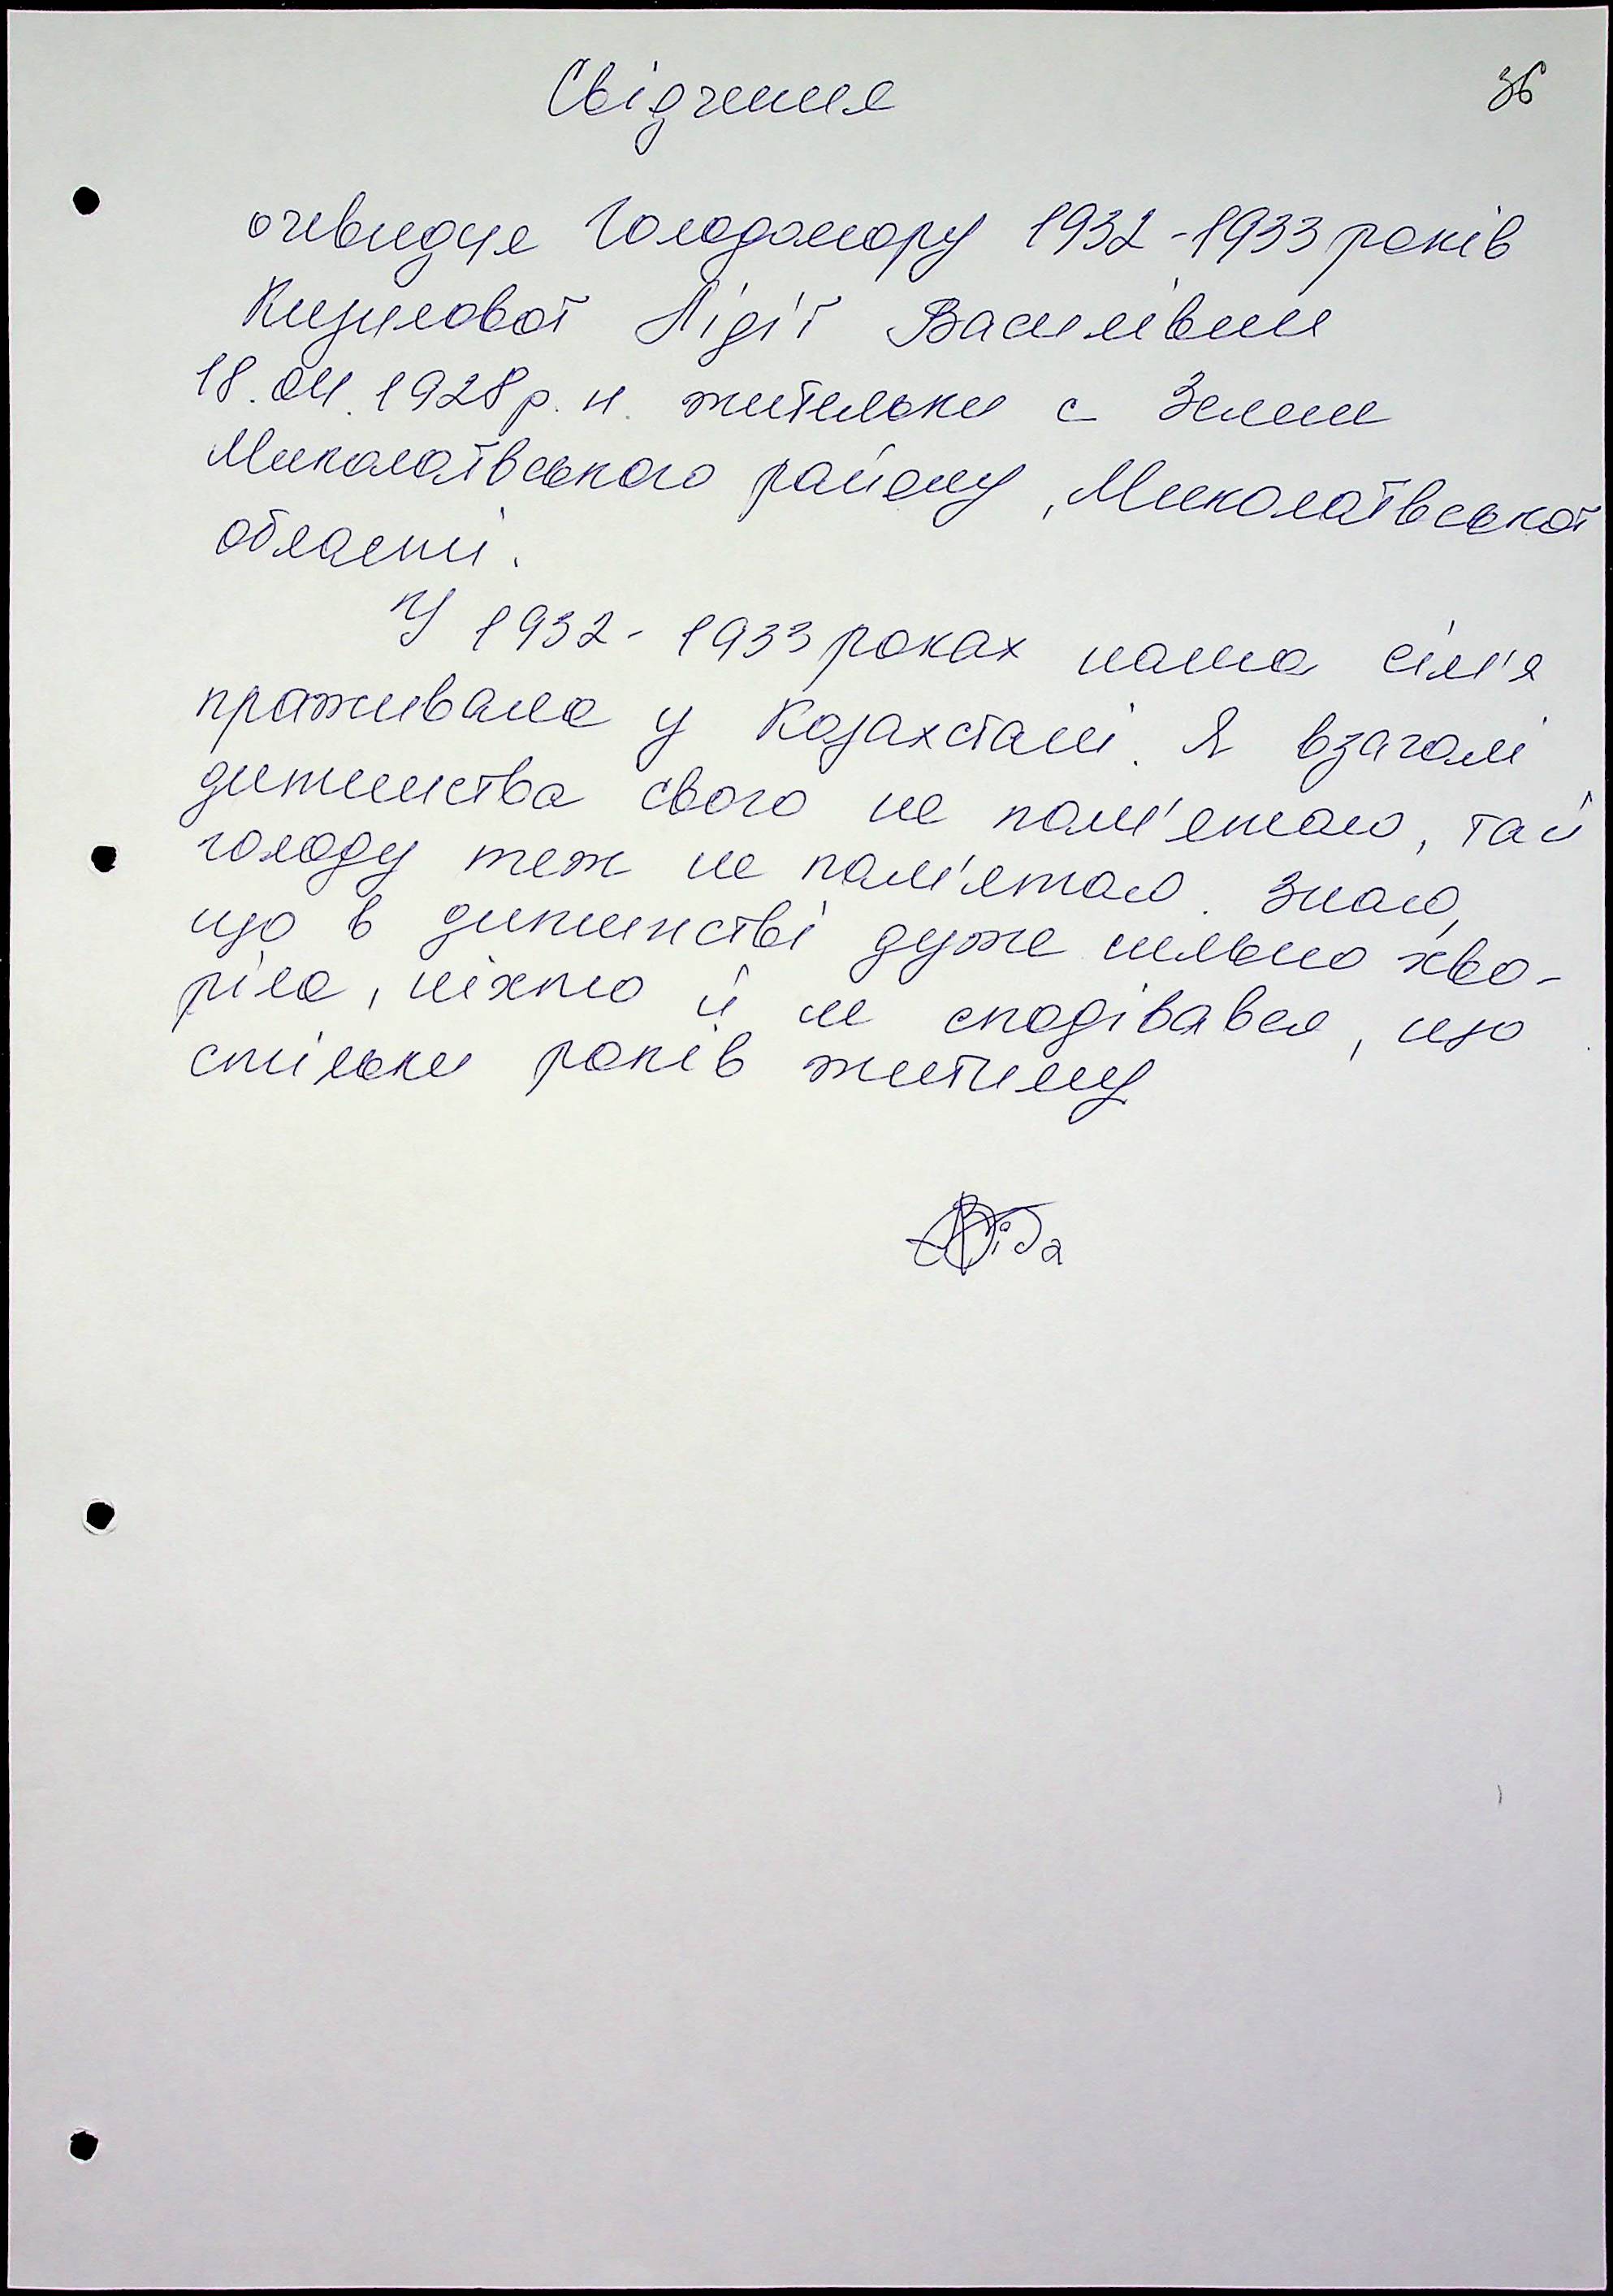 Свідчення
36
очевидця Голодомору 1932-1933 років
Кизилової Лідії Василівни
18.04.1928 р.н. жительки с
Миколаївського району, Миколаївської
області.
У 1932-1933 роках наша сім'я
проживала у Казахстані. Я взагалі
дитинства свого не пам'ятаю, тай
голоду теж не пам'ятаю. Знаю,
що в дитинстві дуже сильно хво-
ріла, ніхто й не сподівався, що
стільки років житиму